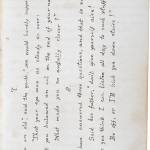 7.
old," said the youth, "one would hardly suppose
That your eye was as steady as ever:
you balanced an eel on the end of your nose
What made you so awfully clever?"
8.
have answered three questions, and that is
Said his father, "don't give yourself airs!
you think I can listen all day to such stuff?
Be off, or I'll kick you down stairs!"